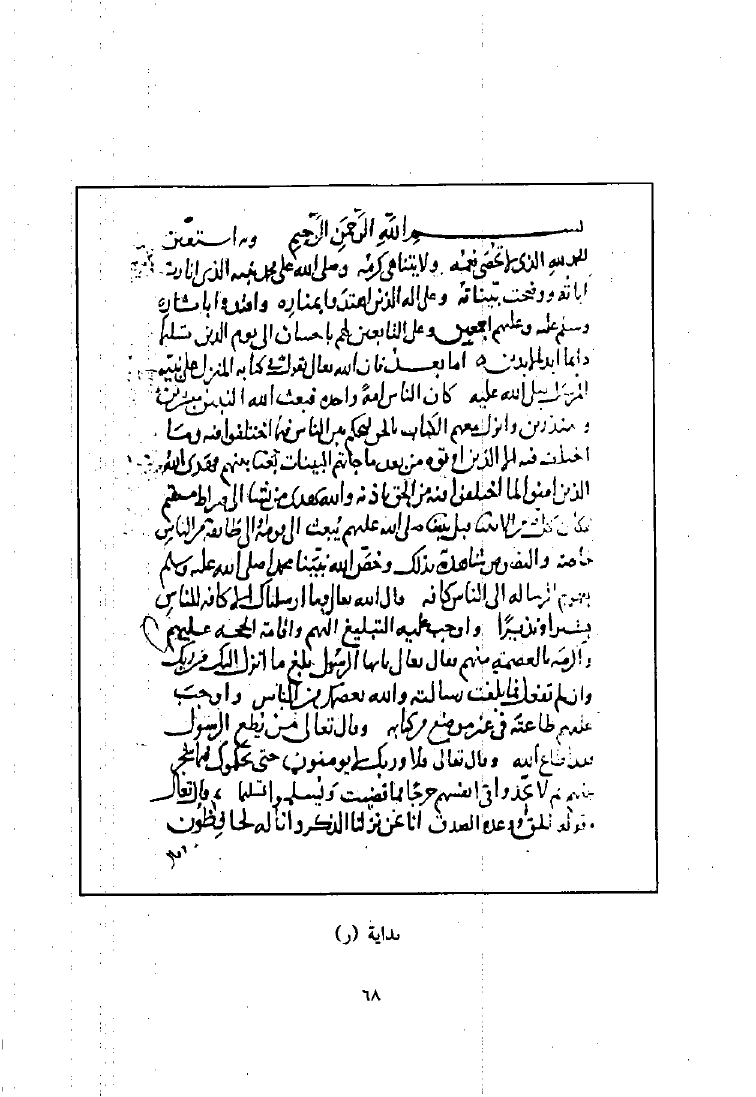 بسم الله الرحمن الرحيم وبه استعين
الحمد لله الذي لا تحصى نعمه ولا يتناهى كرمه وصلى الله على محمد نبيه الذي انارت
اياته ووضحت بيناته وعلى اله الذين اهتدوا بمناره واقتدوا باثاره
وسلم عليه وعليهم اجمعين وعلى التابعين لهم باحسان الى يوم الدين تسليما
دائما ابد الابدين اما بعد فان الله تعالى يقول في كتابه المنزل على نبيه
المرسل صلى الله عليه كان الناس امة واحدة فبعث الله النبيين مبشرين
ومنذرين وانزل معهم الكتاب بالحق ليحكم بين الناس فيما اختلفوا فيه وما
اختلف فيه الا الذين اوتوه من بعد ما جاتهم البينات بغيا بينهم فهدى الله
الذين امنوا لما اختلفوا فيه من الحق باذنه والله يهدي من يشا الى صراط مستقيم
فكان كل من الانبيا قبل نبينا صلى الله عليهم يبعث الى قومه او الى طائفة من الناس
خاصة والنصوص شاهدة بذلك وخص الله نبينا محمدا صلى الله عليه وسلم
بعموم الرسالة الى الناس كافة قال الله تعالى وما ارسلناك الا كافة للناس
بشيرا ونذيرا واوجب عليه التبليغ اليهم واقامة الحجة عليهم
والزمه بالعصمة منهم فقال تعالى يايها الرسول بلغ ما انزل اليك من ربك
وان لم تفعل فما بلغت رسالته والله يعصمك من الناس واوجب
عليهم طاعته في غير موضع من كتابه وقال تعالى من يطع الرسول
فقد اطاع الله وقال تعالى فلا وربك لا يومنون حتى يحكموك فيما شجر
بينهم ثم لا يجدوا في انفسهم حرجا مما قضيت ويسلموا تسليما وقال تعالى
وقوله الحق ووعده الصدق انا نحن نزلنا الذكر وانا له لحافظون
بداية (ر)
٦٨